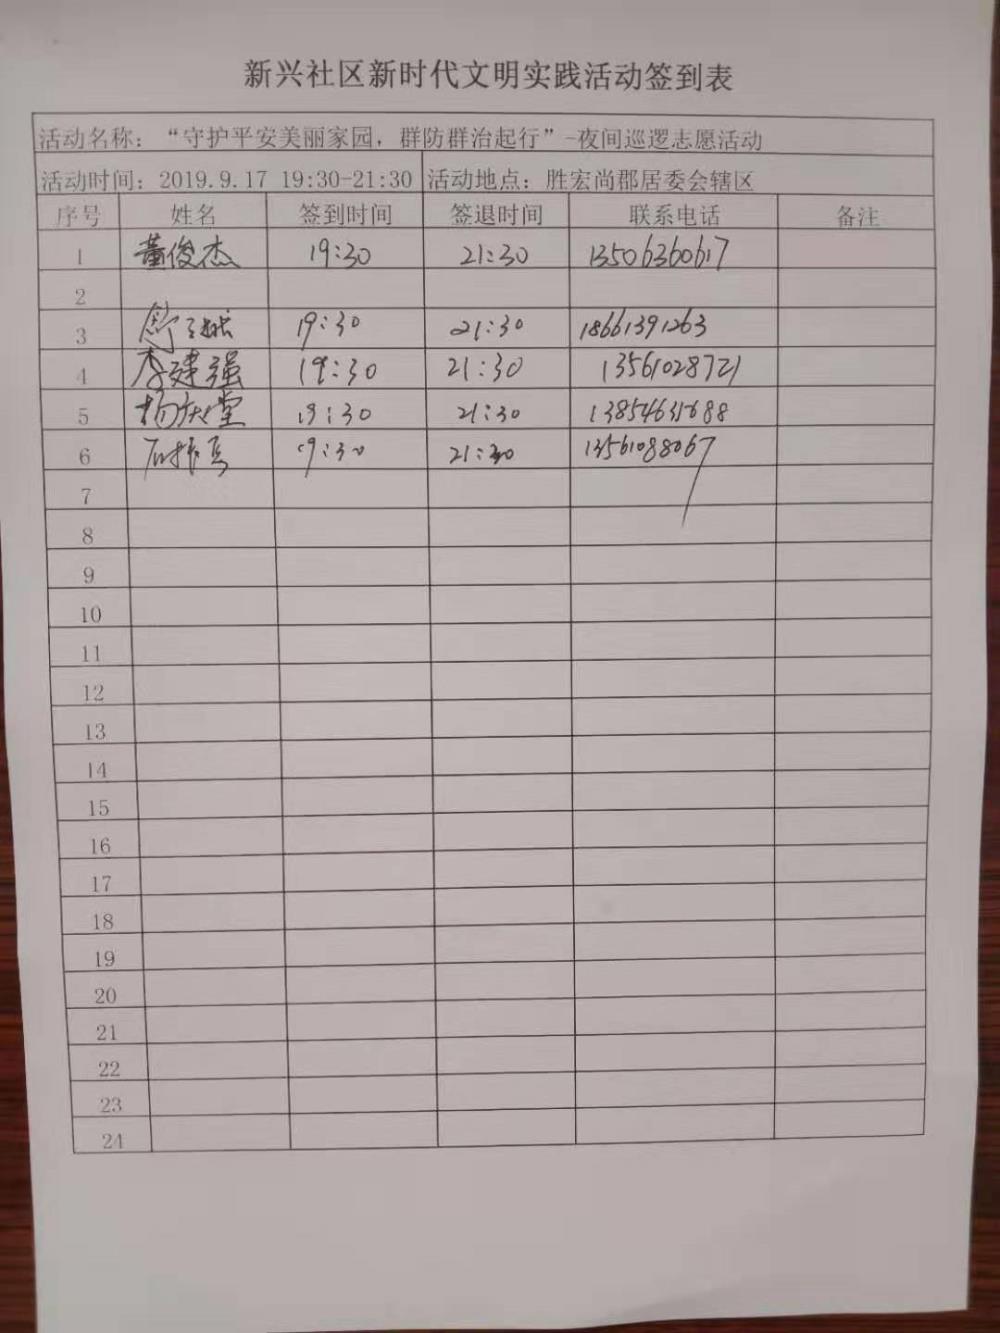 新兴社区新时代文明实践活动签到表
活动名称：“守护平安美丽家园，群防群治起行”-夜间巡逻志愿活动
活动时间：2019.9.17 19:30-21:30 活动地点：胜宏尚郡居委会辖区
序号 姓名 签到时间 签退时间 联系电话 备注
1 董俊杰 19:30 21:30 13506360617
2
3 19:30 21:30 18661391263
4 李建强 19:30 21:30 13561028721
5 杨庆堂 19:30 21:30 13854631688
6 19:30 21:30 13561088067
7
8
9
10
11
12
13
14
15
16
17
18
19
20
21
22
23
24